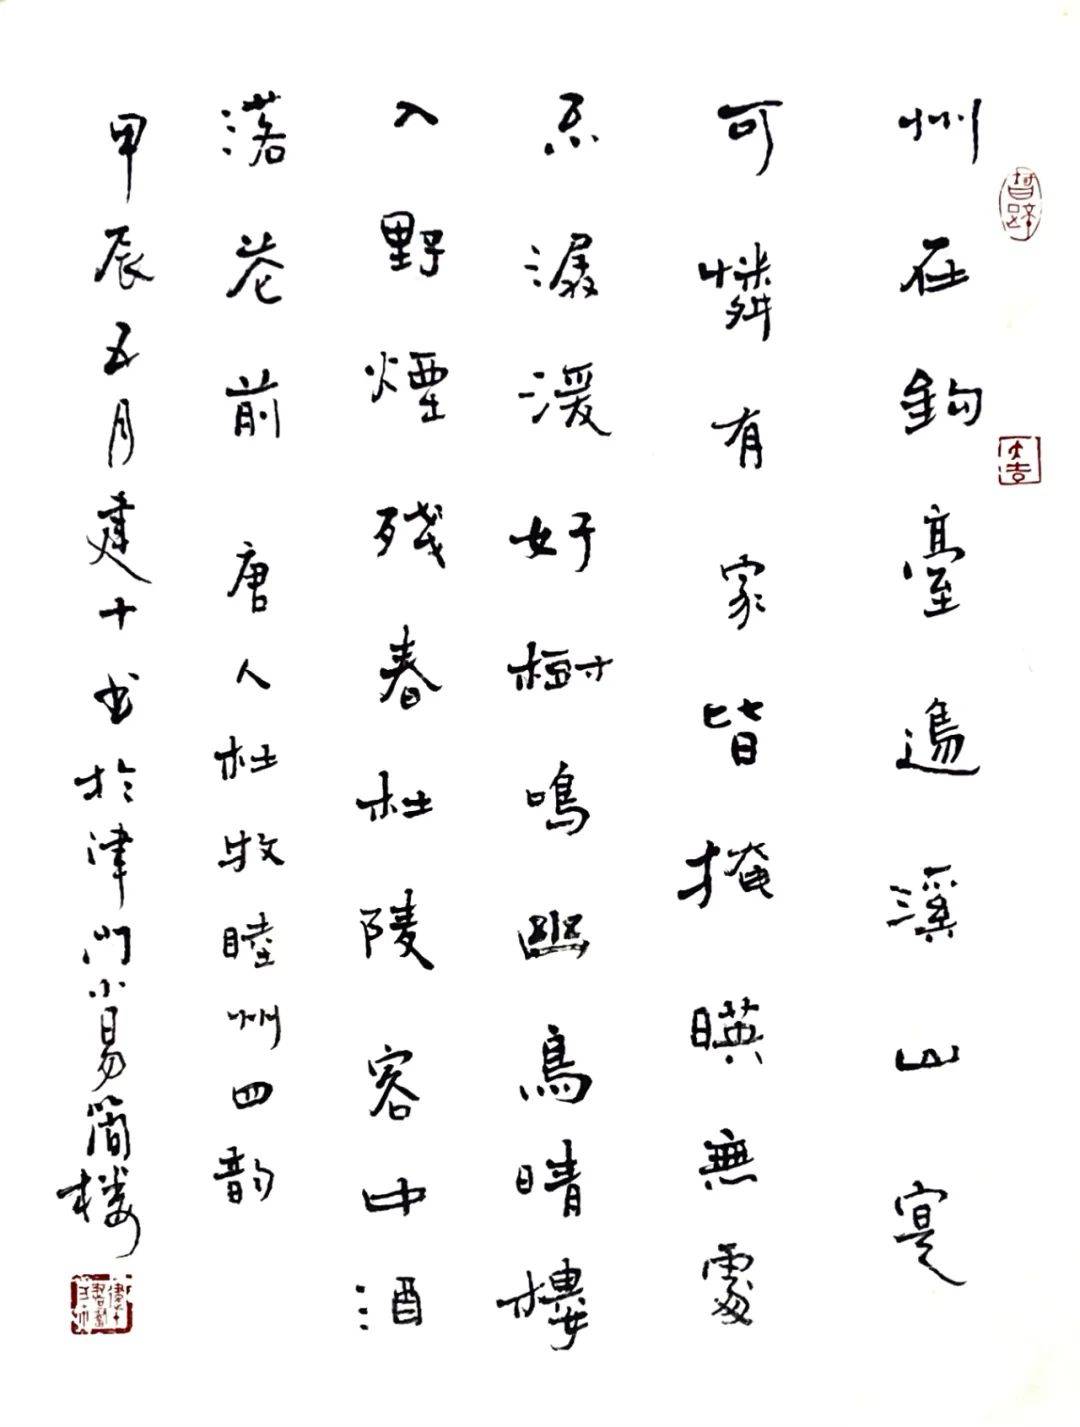 州在鈎臺邊溪山寔
可憐有家皆掩暎無處
不潺湲好樹鳴幽鳥晴樓
入野煙殘春杜陵客中酒
落花前 唐人杜牧睦州四韵
甲辰五月建十书於津门小易簡楼
大吉